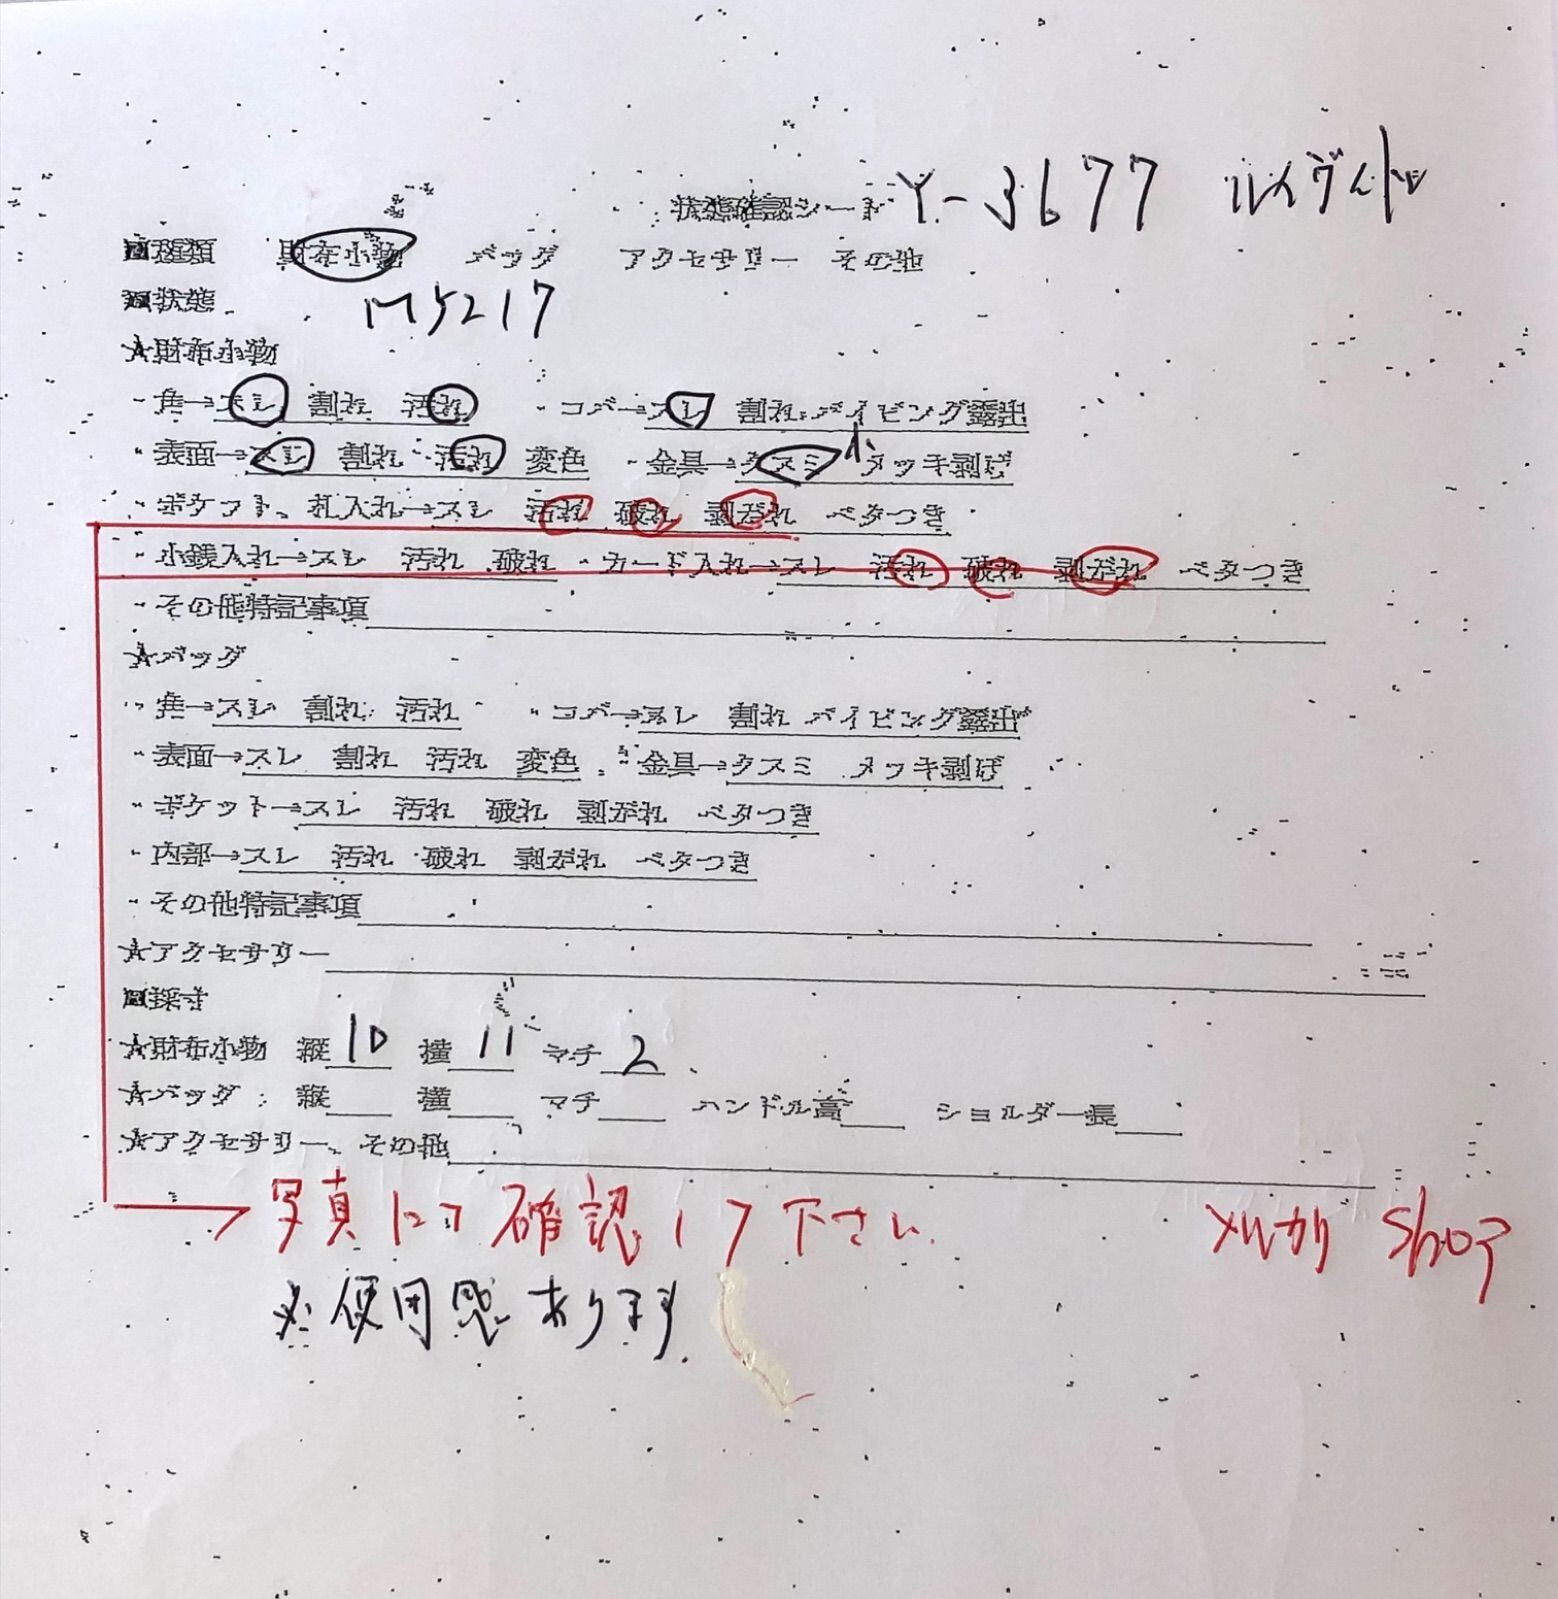 状態確認シート Y-3677 ルイヴィトン
■種類 財布小物 バッグ アクセサリー その他
■状態 M5217
★財布小物
・角→スレ 割れ 汚れ ・コバ→スレ 割れ パイピング露出
・表面→スレ 割れ 汚れ 変色 ・金具→クスミ 小 メッキ剥げ
・ポケット、札入れ→スレ 汚れ 破れ 剥がれ ベタつき
・小銭入れ→スレ 汚れ 破れ ・カード入れ→スレ 汚れ 破れ 剥がれ ベタつき
・その他特記事項
★バッグ
・角→スレ 割れ 汚れ ・コバ→スレ 割れ パイピング露出
・表面→スレ 割れ 汚れ 変色 ・金具→クスミ メッキ剥げ
・ポケット→スレ 汚れ 破れ 剥がれ ベタつき
・内部→スレ 汚れ 破れ 剥がれ ベタつき
・その他特記事項
★アクセサリー
■採寸
★財布小物 縦10 横11 マチ2
★バッグ 縦 横 マチ ハンドル高 ショルダー長
★アクセサリー、その他
→写真にて確認して下さい メルカリ Shop
※使用感あります